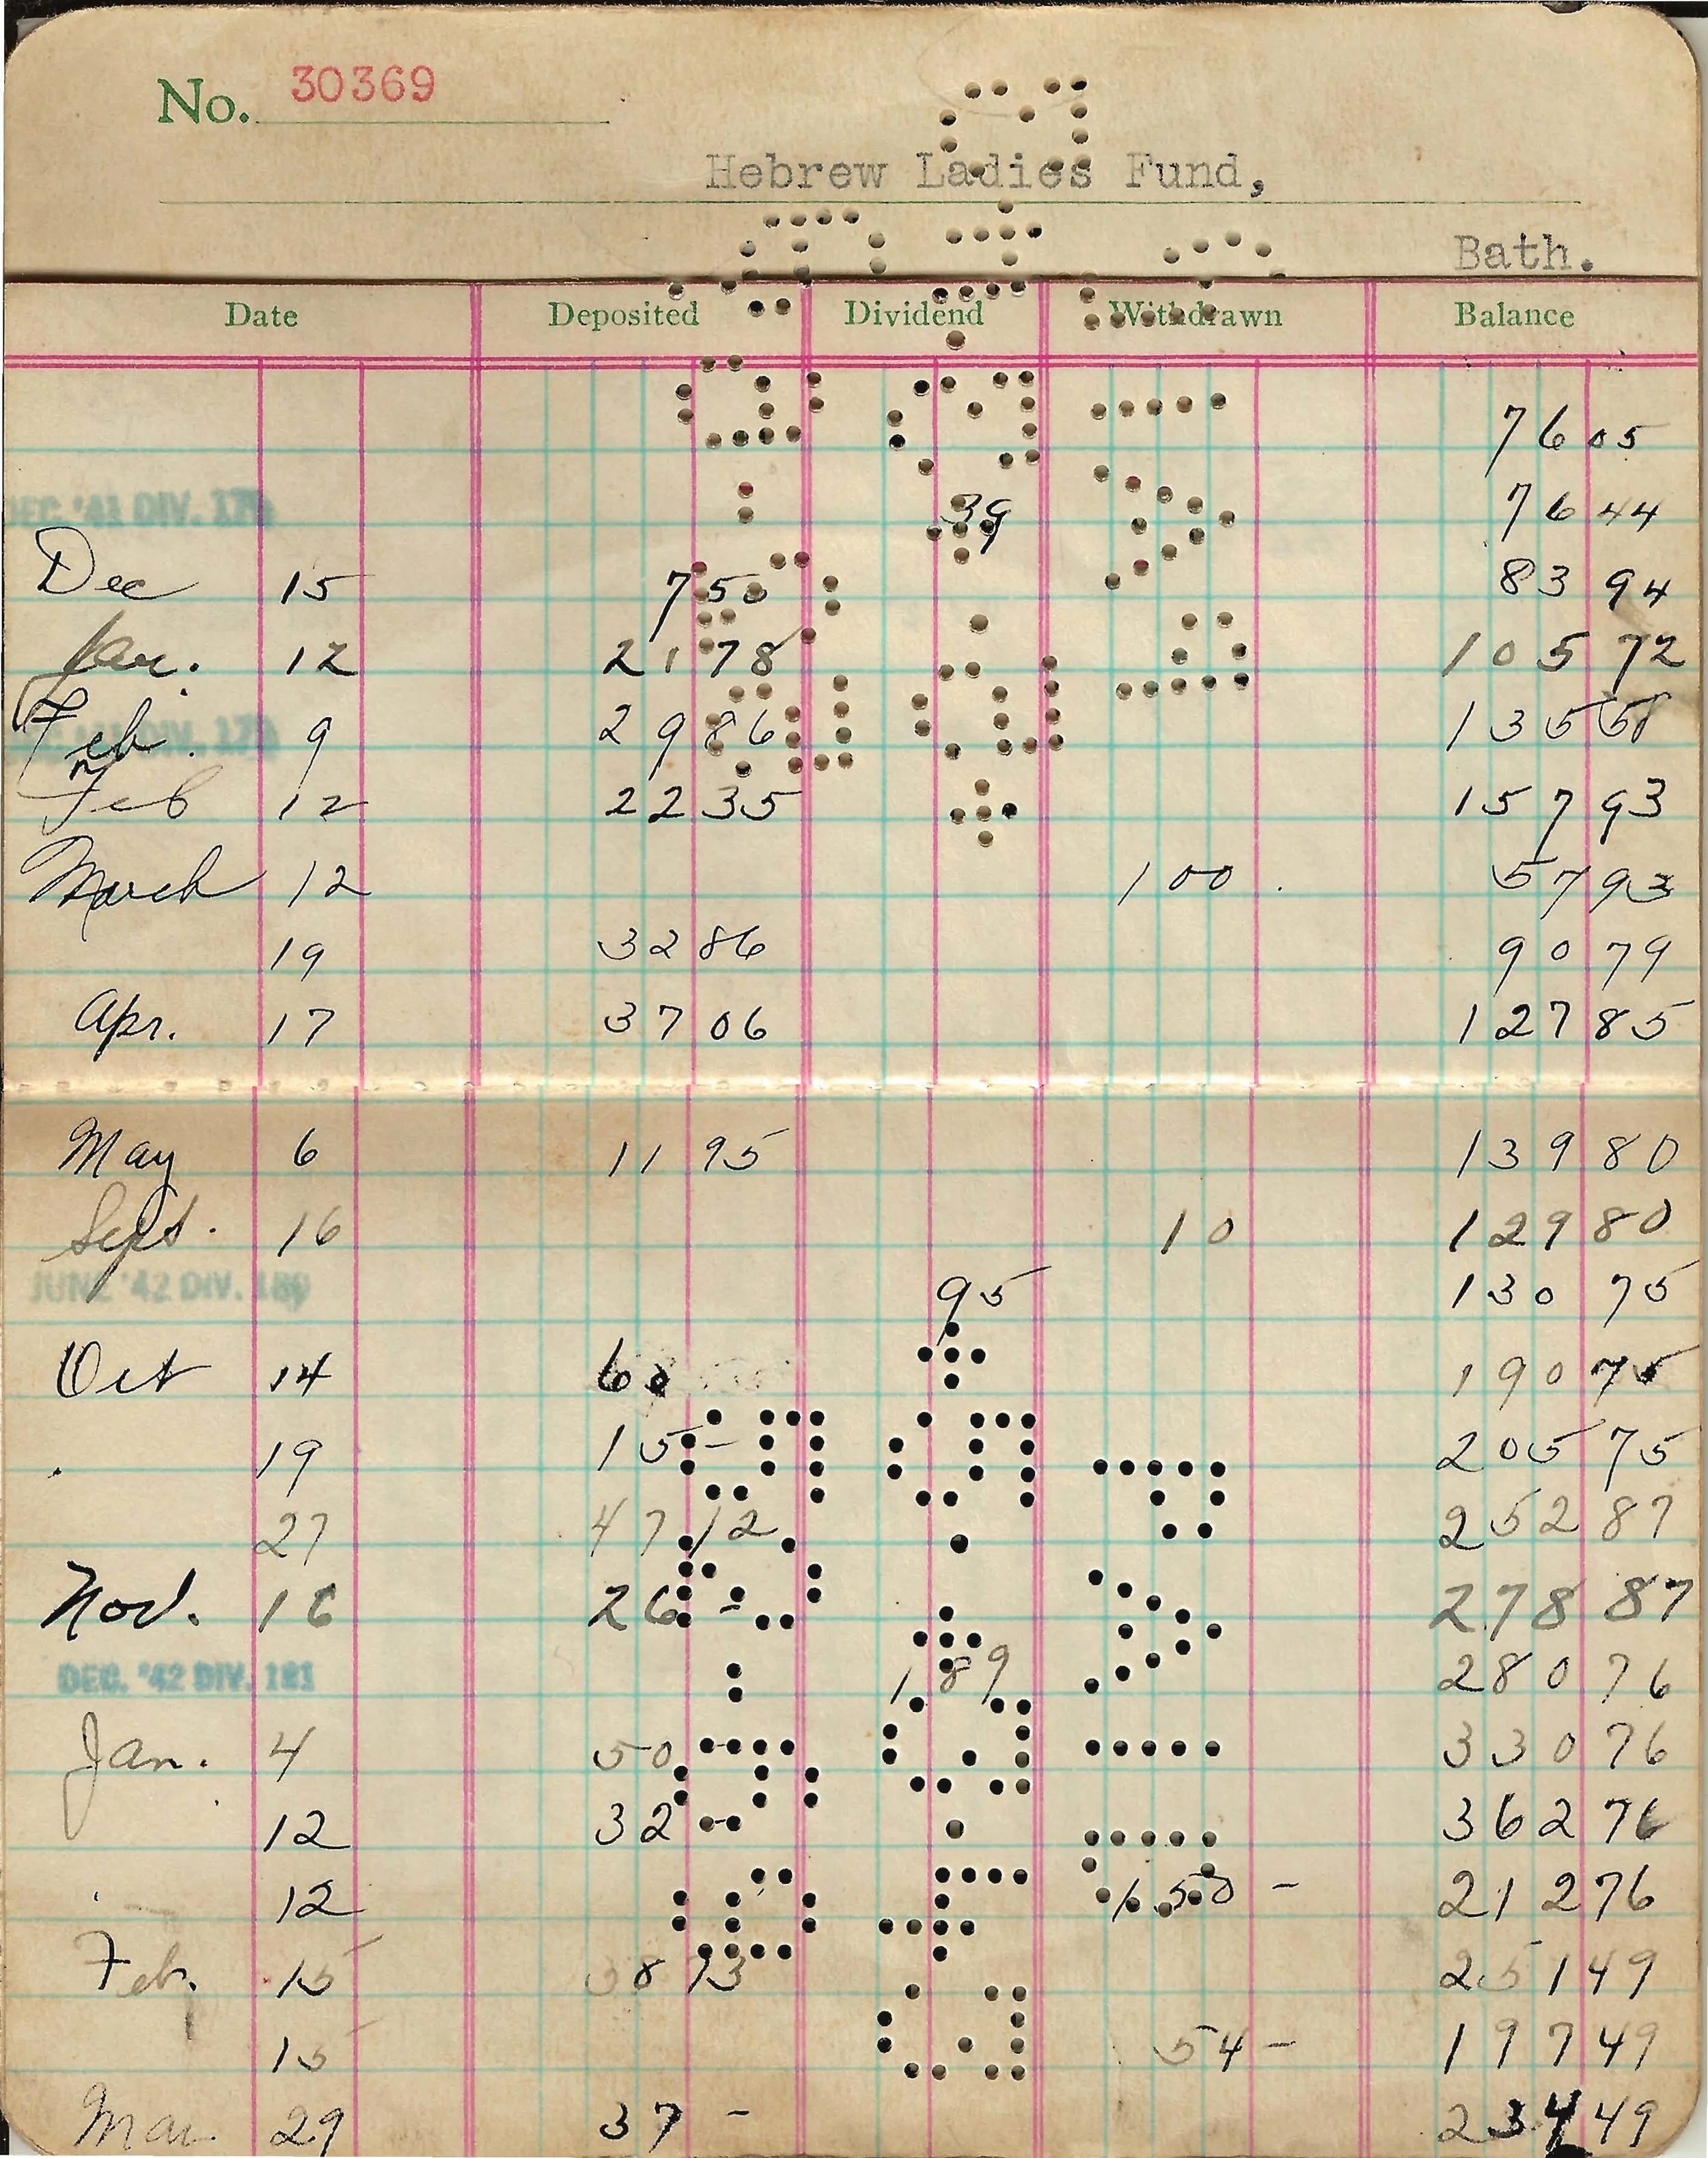 No. 30369
Hebrew Ladies Fund,
Bath.
Date Deposited Dividend Withdrawn Balance
76 05
DEC. '41 DIV. 179 39 76 44
Dec 15 7 50 83 94
Jan. 12 21 78 105 72
Feb. 9 29 86 135 58
Feb 12 22 35 157 93
March 12 100. 57 93
19 32 86 90 79
Apr. 17 37 06 127 85
May 6 11 95 139 80
Sept. 16 10 129 80
JUNE '42 DIV. 180 95 130 75
Oct 14 60 190 75
19 15 - 205 75
27 47 12 252 87
Nov. 16 26 - 278 87
DEC. '42 DIV. 181 1 89 280 76
Jan. 4 50 330 76
12 32 - 362 76
12 150 - 212 76
Feb. 15 38 73 251 49
15 54 - 197 49
Mar 29 37 - 234 49